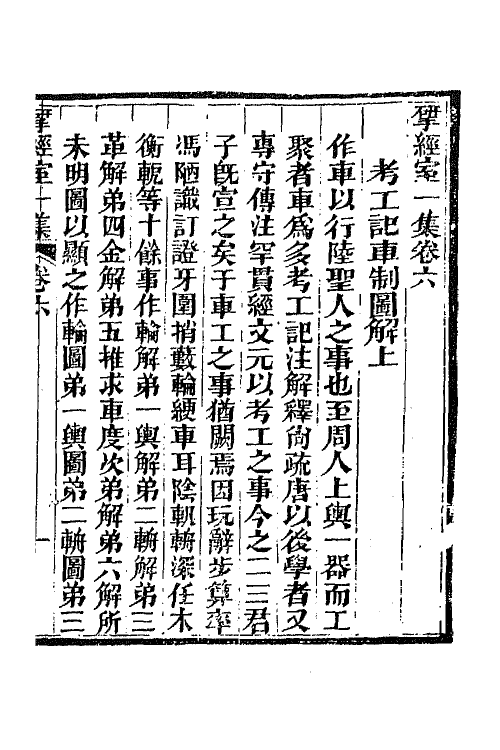 揅經室一集卷六
考工記車制圖解上
作車以行陸聖人之事也至周人上輿一器而工
聚者車爲多考工記注解釋尙疏唐以後學者又
專守傳注罕貫經文元以考工之事今之二三君
子旣宣之矣于車工之事猶闕焉因玩辭步算率
馮陋識訂證牙圍捎藪輪綆車耳陰軓輈深任木
衡軛等十餘事作輪解弟一輿解弟二輈解弟三
革解弟四金解弟五推求車度次弟解弟六解所
未明圖以顯之作輪圖弟一輿圖弟二輈圖弟三
揅經室一集
卷六
一